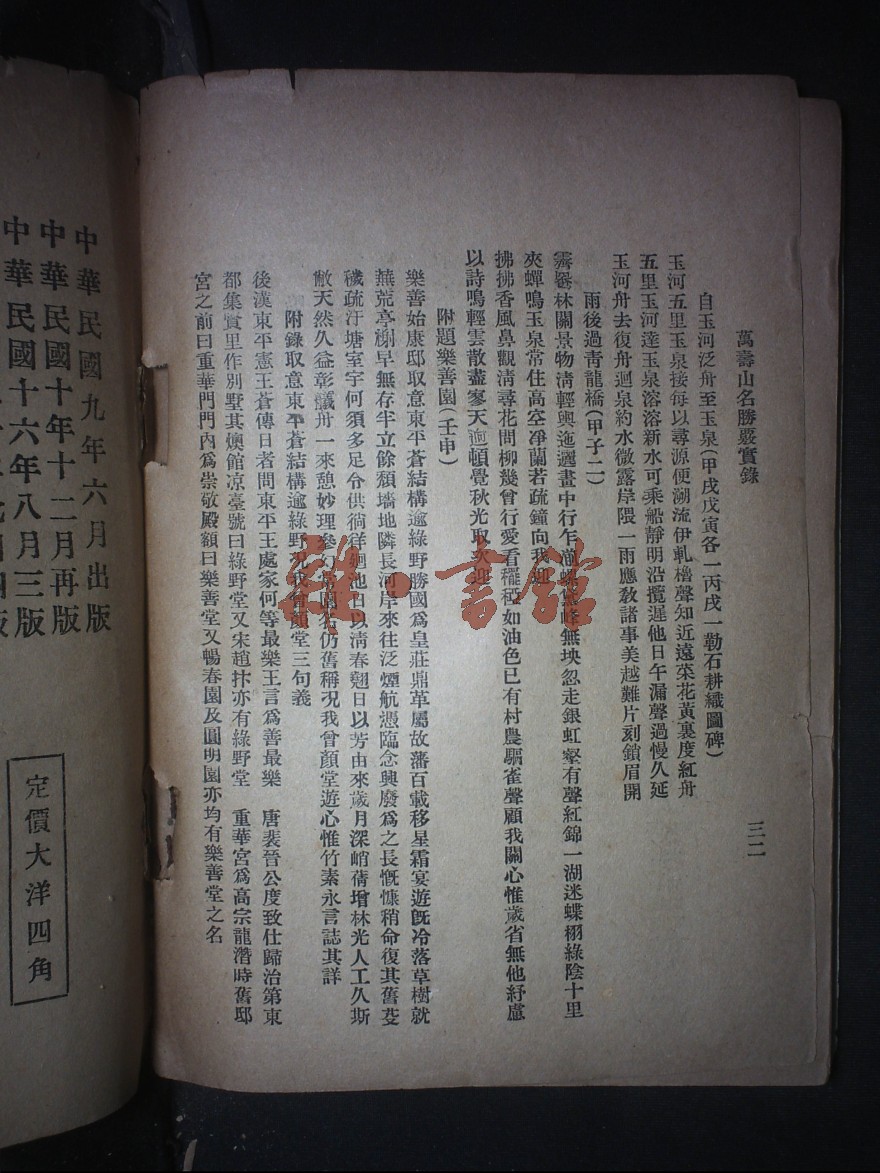 萬壽山名勝覈實錄
三二
自玉河泛舟至玉泉(甲戌戊寅各一丙戌一勒石耕織圖碑)
玉河五里玉泉接每以尋源便溯流伊軋櫓聲知近遠菜花黃裏度紅舟
五里玉河達玉泉溶溶新水可乘船靜明沿攬遲他日午漏聲過慢久延
玉河舟去復舟迴泉約水微露岸隈一雨應教諸事美越難片刻鎖眉開
雨後過青龍橋(甲子二)
霽谿林關景物清輕輿迤邐畫中行乍崩螺黛峰無埉忽走銀虹壑有聲紅錦一湖迷蝶栩綠陰十里
夾蟬鳴玉泉常住高空淨蘭若疏鐘向我迎
拂拂香風鼻觀清尋花問柳幾曾行愛看䆉稏如油色已有村農驅雀聲顧我關心惟歲省無他紓慮
以詩鳴輕雲散盡寥天逈頓覺秋光取次迎
附題樂善園(壬申)
樂善始康邸取意東平蒼結構逾綠野勝國爲皇莊鼎革屬故藩百載移星霜宴遊旣冷落草樹就
蕪荒亭榭早無存半立餘頹墻地隣長河岸來往泛煙航憑臨念興廢爲之長慨慷稍命復其舊芟
穢疏汙塘室宇何須多足令供徜徉迴池日以清春翹日以芳由來歲月深峭蒨增林光人工久斯
敝天然久益彰艤舟一來憩妙理參幻常園名仍舊稱况我曾顏堂遊心惟竹素永言誌其詳
附錄取意東平蒼結構逾綠野况我曾顏堂三句義
後漢東平憲王蒼傳日者問東平王處家何等最樂王言爲善最樂　唐裴晉公度致仕歸治第東
都集賢里作別墅其燠館凉臺號曰綠野堂又宋趙抃亦有綠野堂　重華宮爲高宗龍潛時舊邸
宮之前曰重華門門內爲崇敬殿額曰樂善堂又暢春園及圓明園亦均有樂善堂之名
中華民國九年六月出版
中華民國十年十二月再版
中華民國十六年八月三版
定價大洋四角
雜·書館